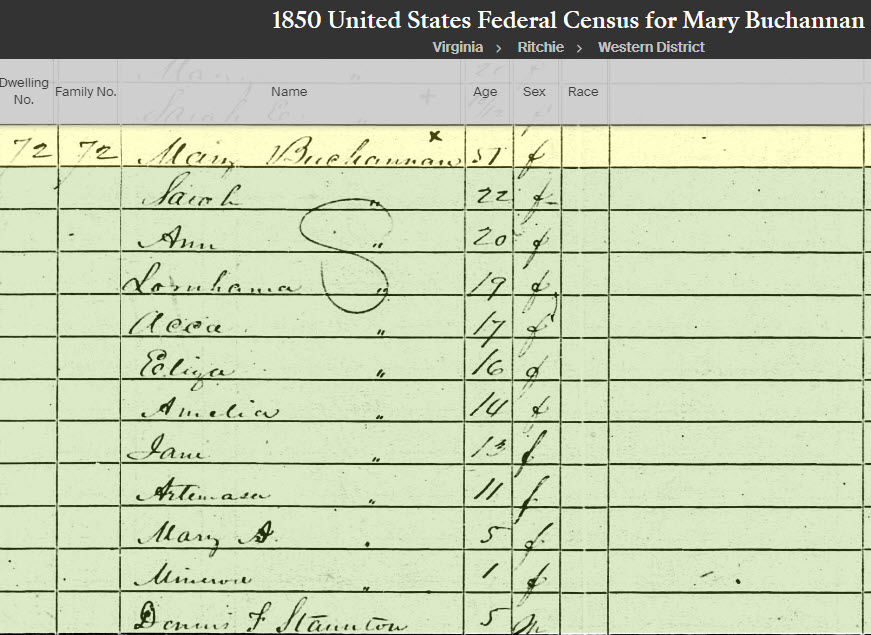 1850 United States Federal Census for Mary Buchannan
Virginia > Ritchie > Western District
Dwelling No. Family No. Name Age Sex Race
72 72 Mary Buchannan x 51 f
Sarah " 22 f
Ann " 20 f
" 19 f
" 17 f
Eliza " 16 f
Amelia " 14 f
Jane " 13 f
Artemasa " 11 f
Mary A. " 5 f
" 1 f
Dennis F Staunton 5 m